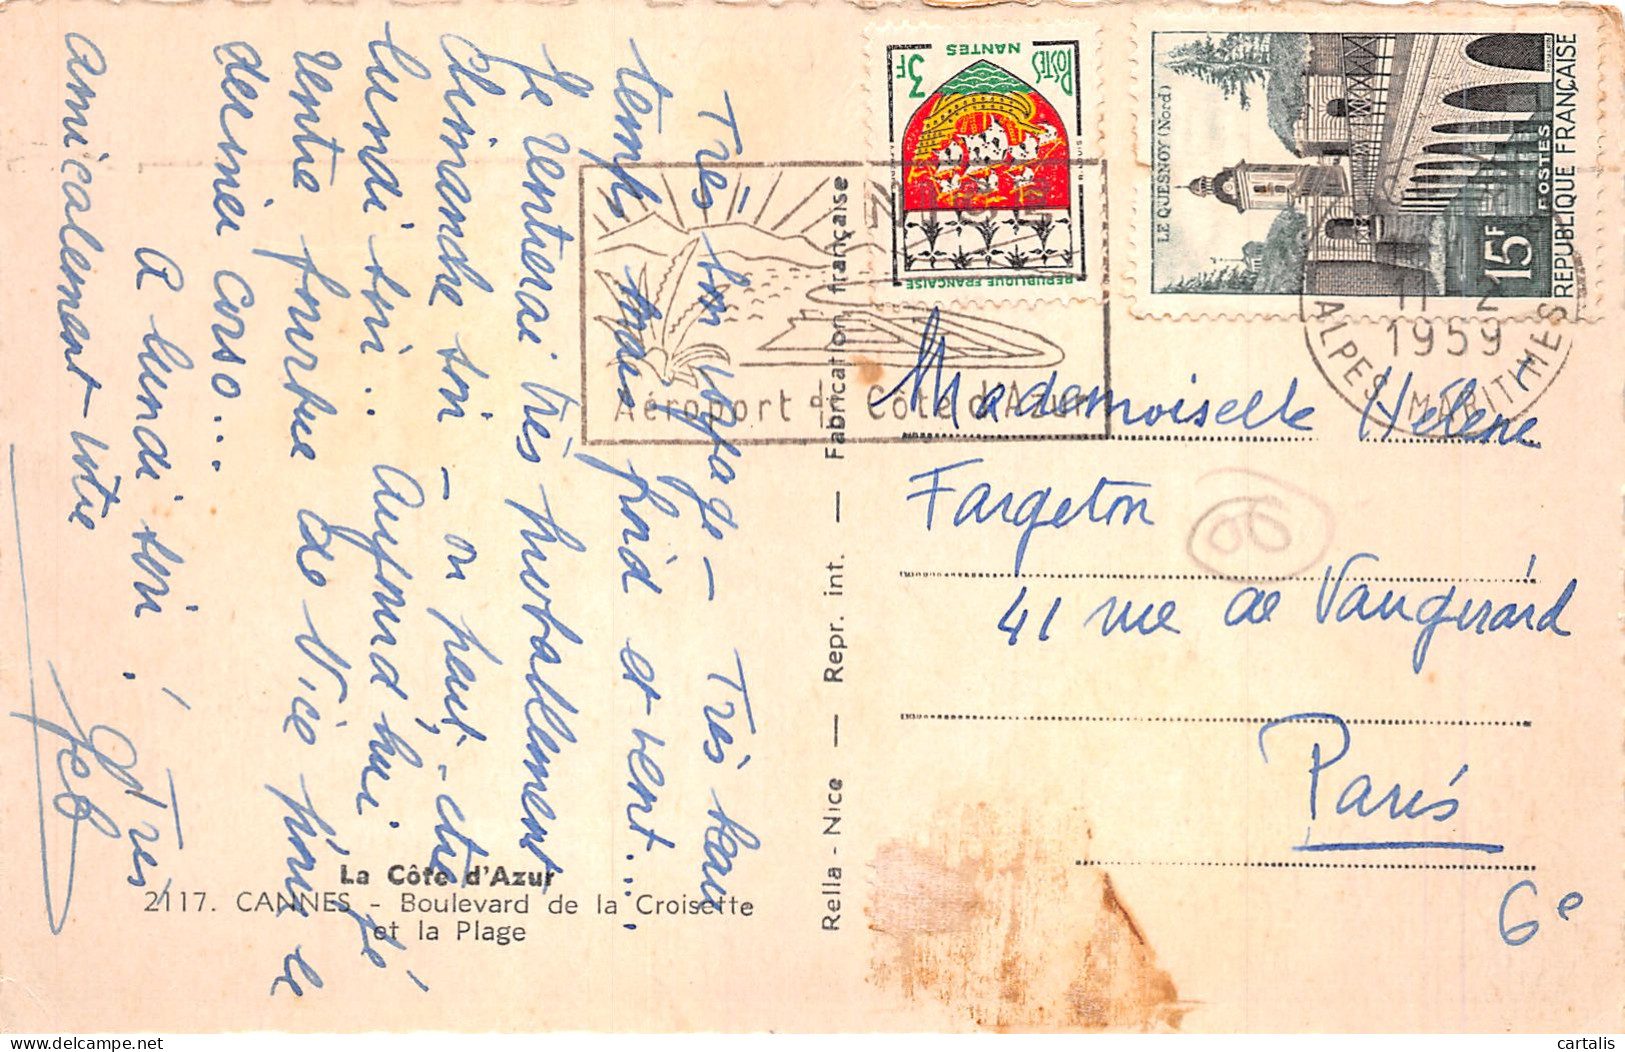 Très bon voyage - Très beau
temps mais froid et vent...
Je rentrerai très probablement
Dimanche soir - ou peut-être
lundi soir.. Aujourd'hui je
rentre ensuite de Nice pour le
dernier corso...
A lundi soir ! Très
amicalement votre
La Côte d'Azur
2117. CANNES - Boulevard de la Croisette
et la Plage
Rella - Nice — Repr. int. — Fabrication française
POSTES
NANTES
3F
REPUBLIQUE FRANÇAISE
LE QUESNOY (Nord)
15F
POSTES
REPUBLIQUE FRANÇAISE
Aéroport de Côte d'Azur
1959
ALPES MARITIMES
Mademoiselle Hélène
Fargeton
41 rue de Vaugirard
Paris
6e
cartalis